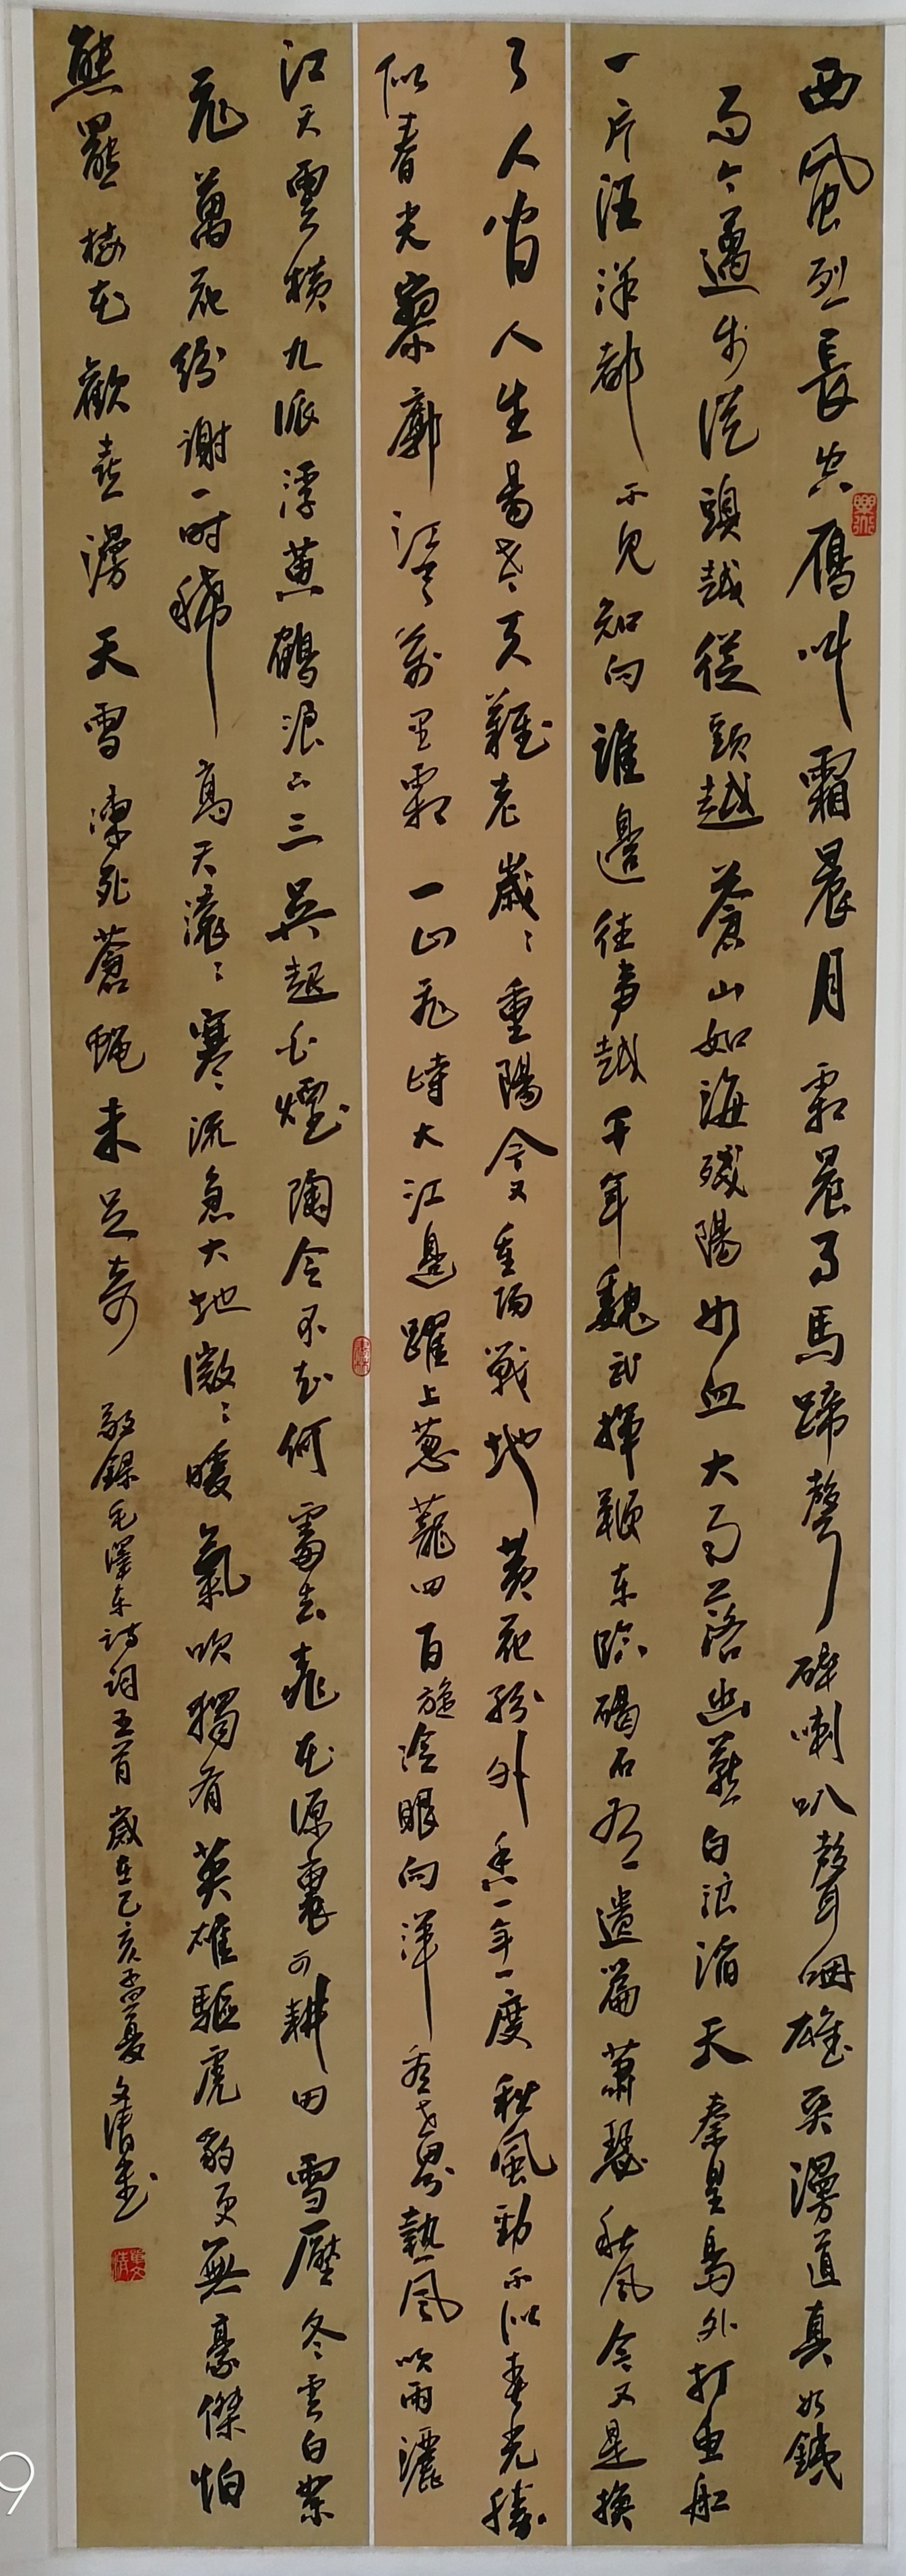 西風烈長空鴈叫霜晨月霜晨月馬蹄聲碎喇叭聲咽雄关漫道真如鐵
而今邁步從頭越從頭越蒼山如海殘陽如血大雨落幽燕白浪滔天秦皇島外打魚船
一片汪洋都不見知向誰邊往事越千年魏武揮鞭東臨碣石有遺篇蕭瑟秋風今又是換
了人間人生易老天難老歲歲重陽今又重陽戰地黄花紛外香一年一度秋風勁不似春光勝
似春光寥廓江天萬里霜一山飛峙大江邊躍上蔥蘢四百旋冷眼向洋看世界熱風吹雨灑
江天雲橫九派浮黄鶴浪下三吳起白煙陶令不知何處去桃花源裏可耕田雪壓冬雲白絮
飛萬花紛謝一時稀高天滾滾寒流急大地微微暖氣吹獨有英雄驅虎豹更無豪傑怕
熊羆梅花歡喜漫天雪凍死蒼蠅未足奇 敬錄毛澤东詩詞五首 歲在己亥孟夏 文清書
9